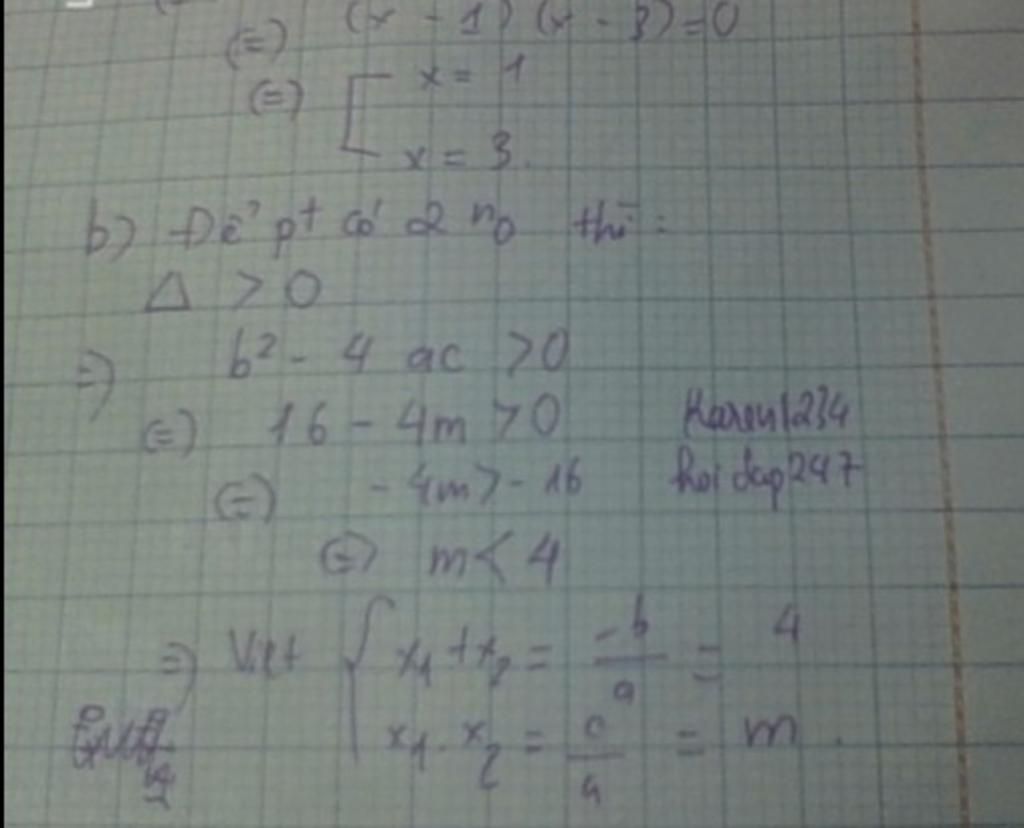 (=) (x - 1) (x - 3) = 0
(=) [ x = 1
x = 3.
b) Để pt có 2 no thì :
Δ > 0
=) b² - 4 ac > 0
(=) 16 - 4m > 0
Karen1234
(=) - 4m > - 16
hoidap247
(=) m < 4
=) Viet { x₁ + x₂ = -b/a = 4
x₁ . x₂ = c/a = m .